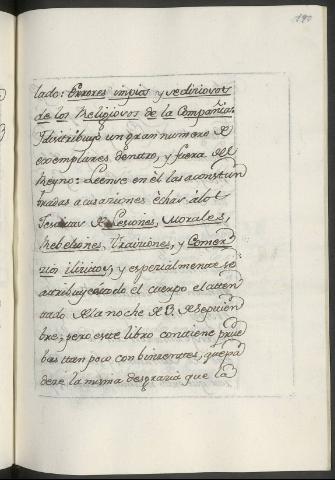 190
lado: Errores impios y sediciosos
de los Religiosos de la Compañia.
Distribuyó un gran numero de
exemplares dentro, y fuera del
Reyno: Leense en él las acostum
bradas acusaciones échas á los
Jesuitas de Lesiones, Morales,
Rebeliones, Traiciones, y Comer
zios ilicitos, y especialmente se
attribuye á todo el cuerpo el atten
tado de la noche de 3. de Septiem
bre; pero este libro contiene prue
bas tan poco combincentes, que pa
deze la misma desgracia que la